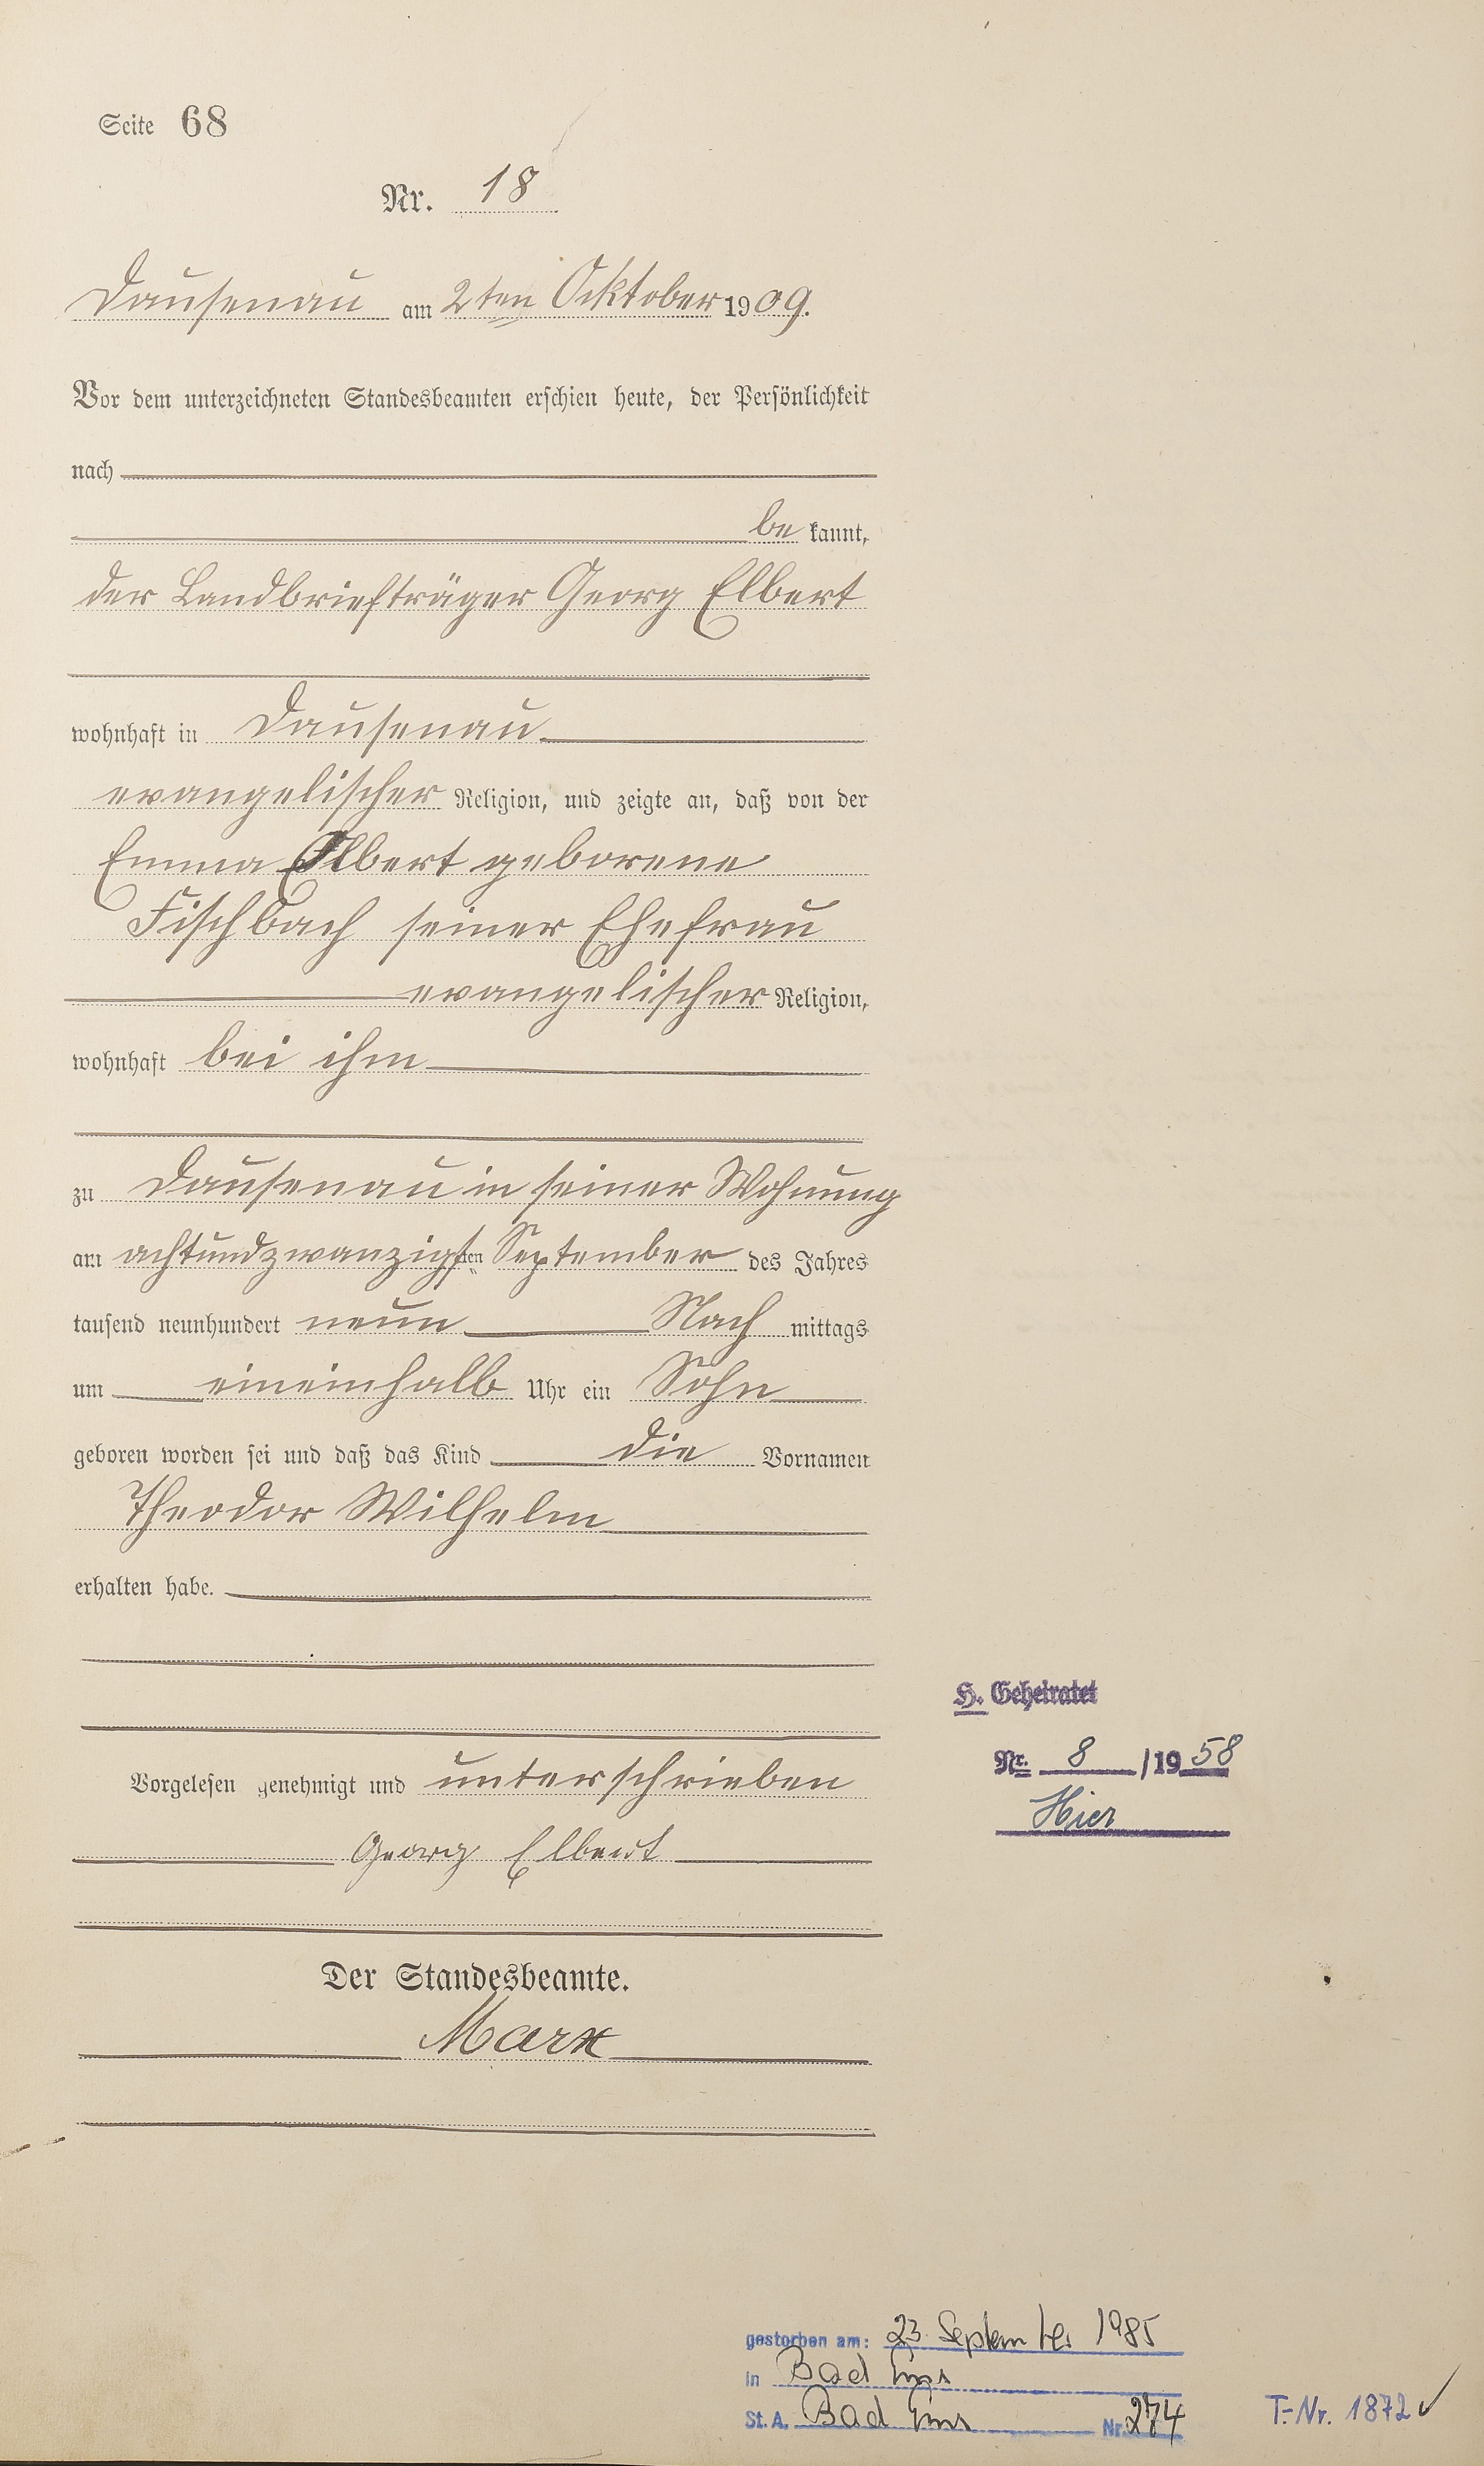 Seite 68
Nr. 18
Dausenau am 2ten Ocktober 1909.
Vor dem unterzeichneten Standesbeamten erschien heute, der Persönlichkeit
nach
be kannt,
der Landbriefträger Georg Elbert
wohnhaft in Dausenau
evangelischer Religion, und zeigte an, daß von der
Emma Elbert geborene
Fischbach seiner Ehefrau
evangelischer Religion,
wohnhaft bei ihm
zu Dausenau in seiner Wohnung
am achtundzwanzigsten September des Jahres
tausend neunhundert neun Nach mittags
um eineinhalb Uhr ein Sohn
geboren worden sei und daß das Kind die Vornamen
Theodor Wilhelm
erhalten habe.
H. Geheiratet
Nr. 8 /1958
Hier
Vorgelesen genehmigt und unterschrieben
Georg Elbert
Der Standesbeamte.
Marx
gestorben am: 23. September 1985
in Bad Ems
St. A. Bad Ems Nr. 274
T.-Nr. 1872 ✓